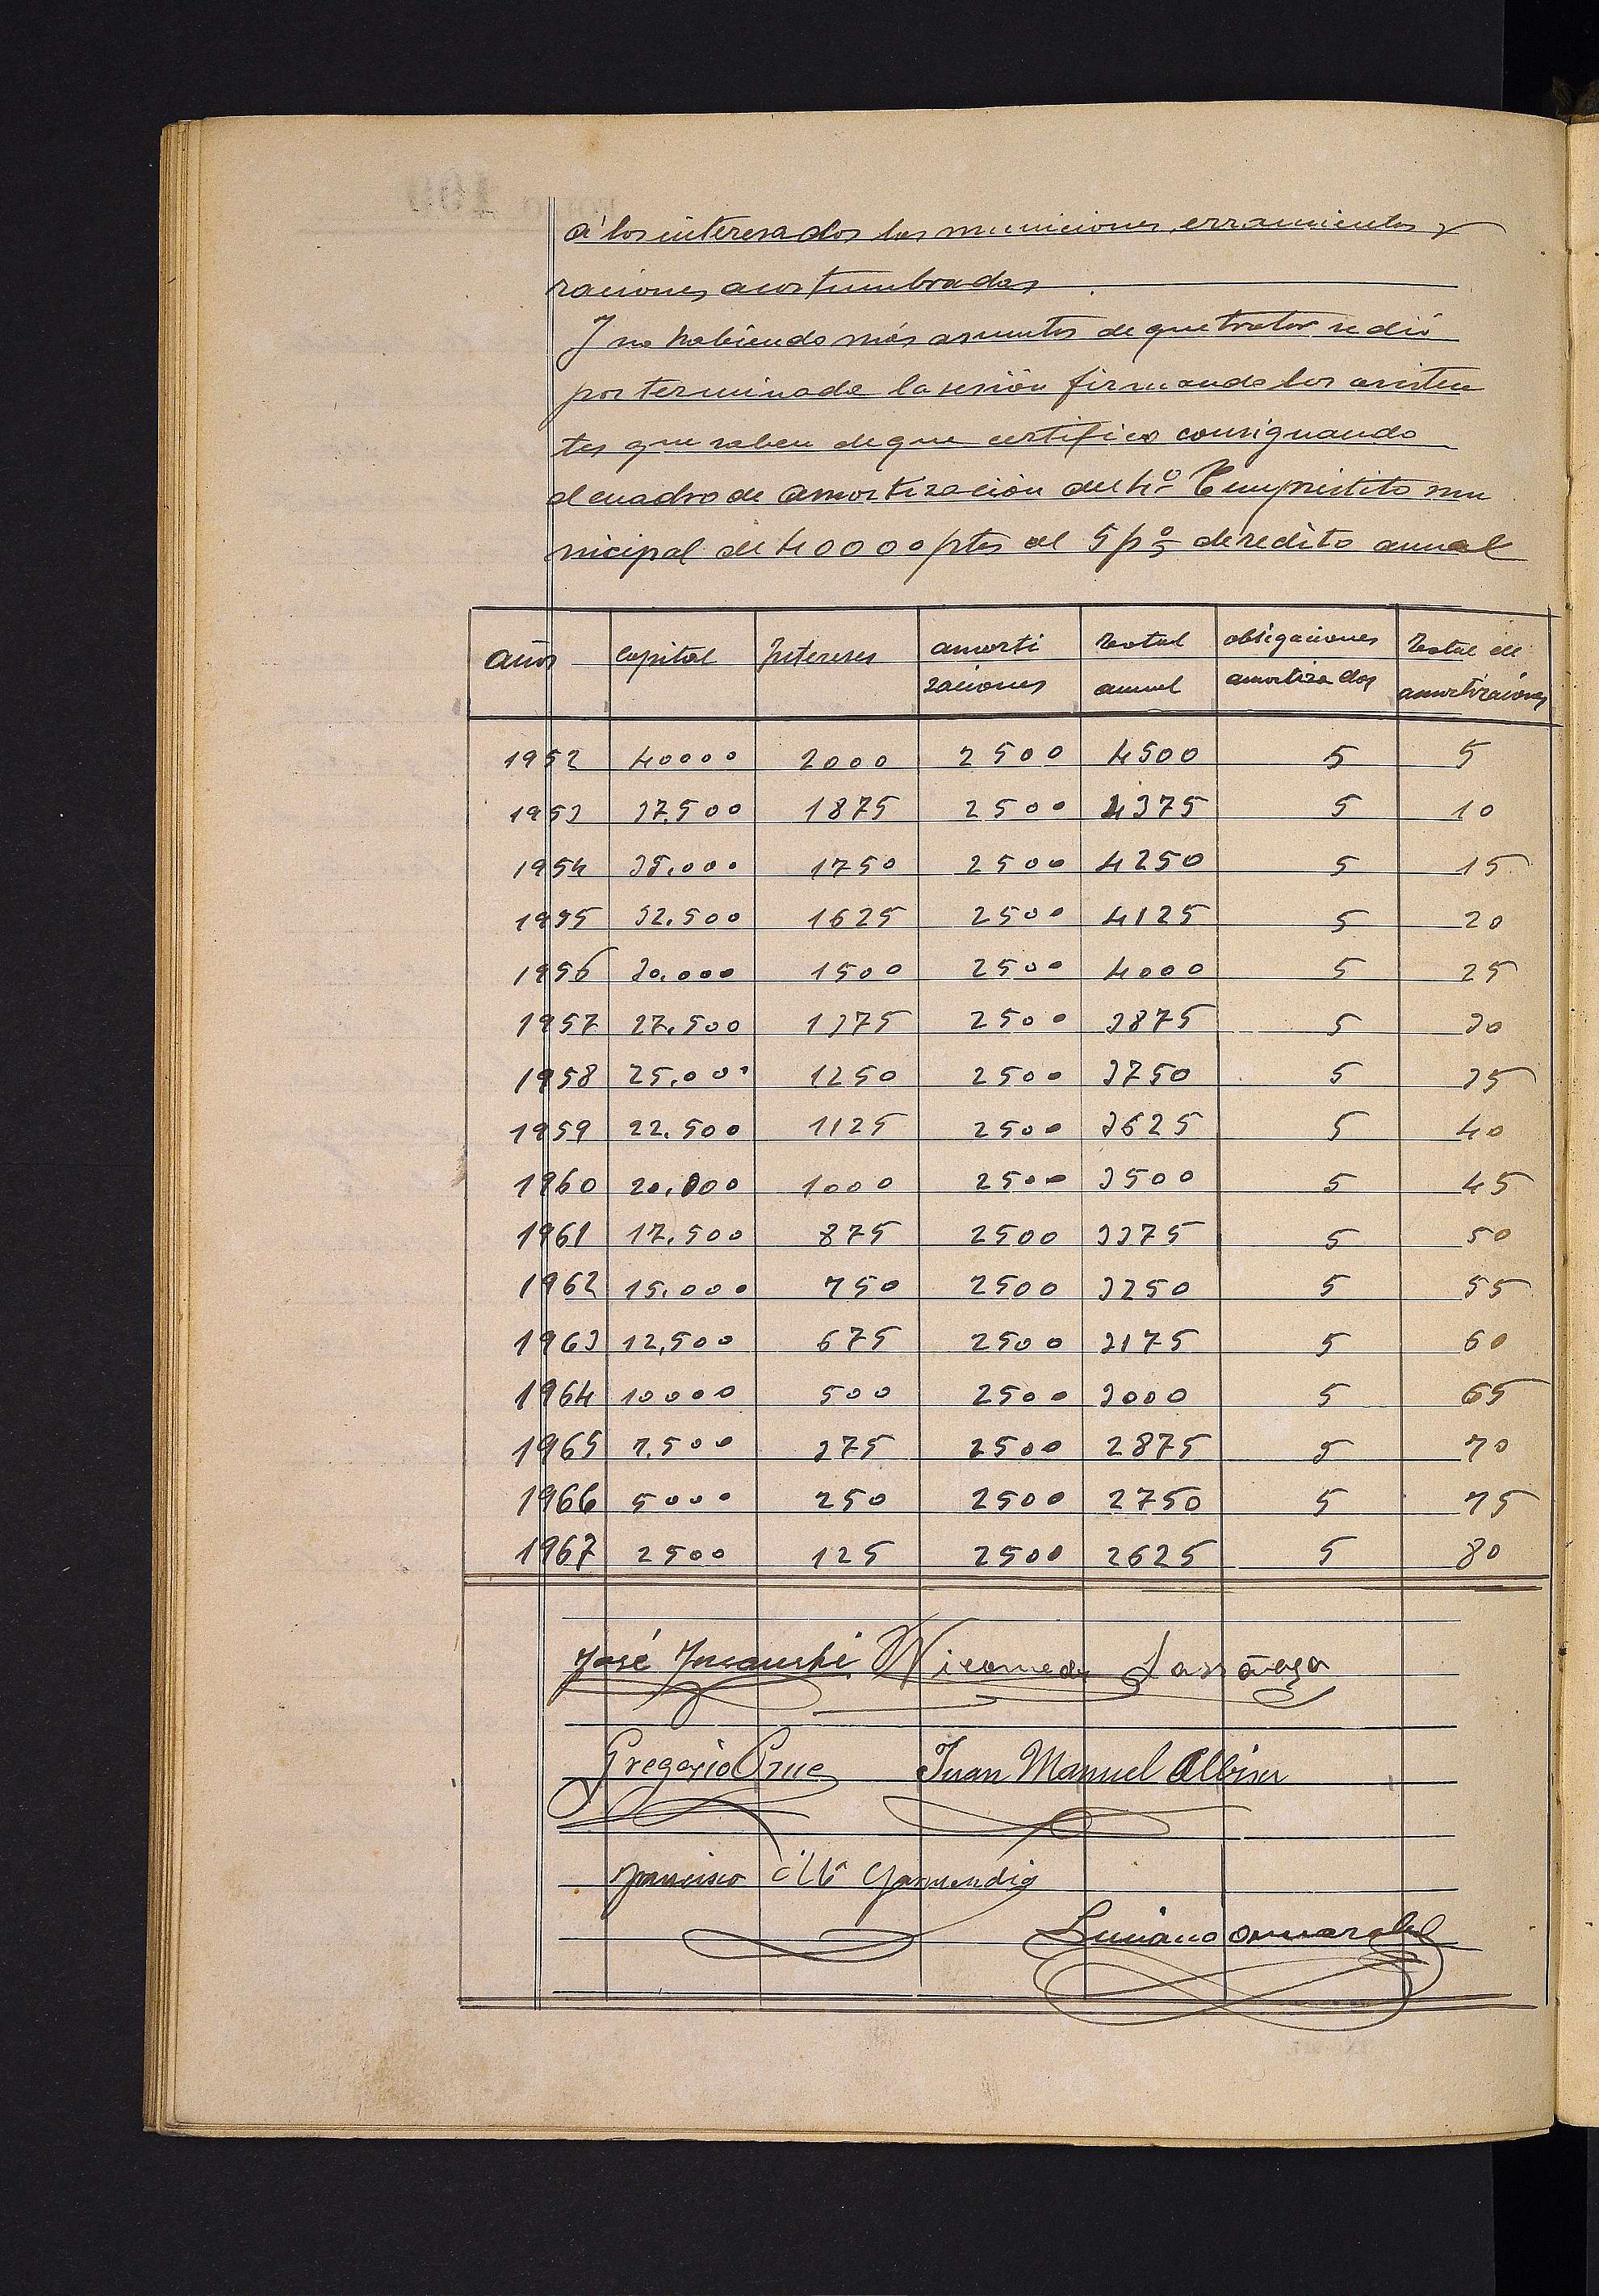 á los interesados las municiones, erramientas y
raciones acostumbradas
Y no habiendo más asuntos de que tratar se dió
por terminada la sesión firmando los asisten
tes que saben de que certifico consignando
el cuadro de amortización del 4º Empréstito mu
nicipal de 40000 ptas al 5 pº de rédito anual
años capital Intereses amorti zaciones total anual obligaciones amortizadas Total de amortizaciones
1952 40000 2000 2500 4500 5 5
1953 37.500 1875 2500 4375 5 10
1954 35.000 1750 2500 4250 5 15
1955 32.500 1625 2500 4125 5 20
1956 30.000 1500 2500 4000 5 25
1957 27.500 1375 2500 3875 5 30
1958 25.000 1250 2500 3750 5 35
1959 22.500 1125 2500 3625 5 40
1960 20.000 1000 2500 3500 5 45
1961 17.500 875 2500 3375 5 50
1962 15.000 750 2500 3250 5 55
1963 12,500 675 2500 3175 5 60
1964 10000 500 2500 3000 5 65
1965 7.500 375 2500 2875 5 70
1966 5000 250 2500 2750 5 75
1967 2500 125 2500 2625 5 80
José Nicomedes Larrañaga
Gregorio Juan Manuel Albisu
Francisco Garmendia
Luciano